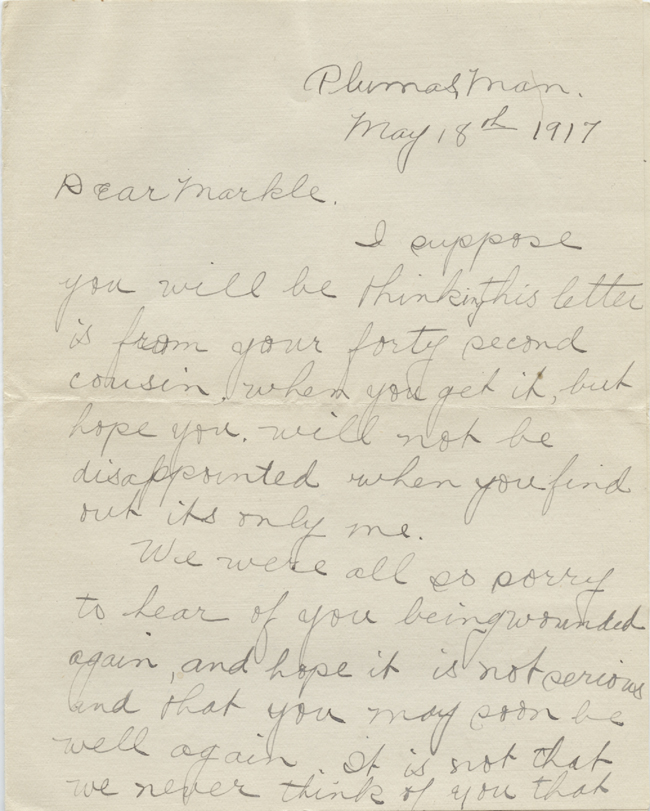 Plumas, Man.
May 18th 1917
Dear Markle.
I suppose
you will be thinking this letter
is from your forty second
cousin, when you get it, but
hope you. will not be
disappointed when you find
out its only me.
We were all so sorry
to hear of you being wounded
again, and hope it is not serious
and that you may soon be
well again. It is not that
we never think of you that